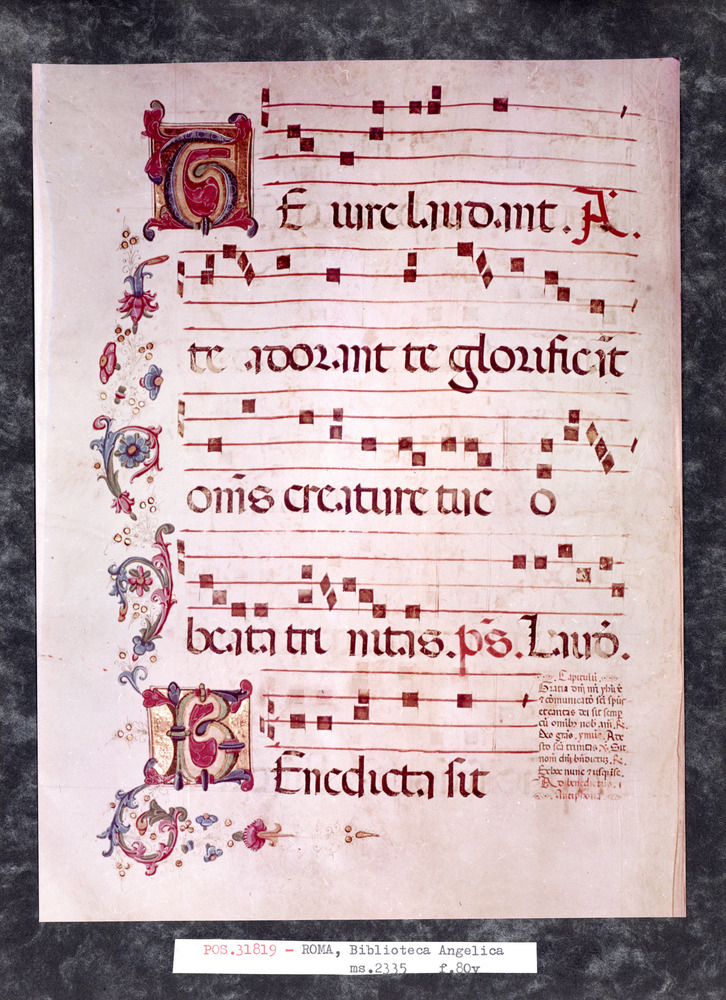 TE iure laudant. A.
te adorant te glorificāt
om̄s creature tue o
beata tri nitas. p̄s. Laud̄.
BEnedicta sit
Capitulū.
Gratia dn̄i nr̄i yhū x̄
⁊ cōmunicatō sc̄i sp̄us
⁊ caritas dei sit semp
cū omib᷒ nob. am̄. R.
Deo grās. ymnus.
sto sc̄a trinitas. V. Sit
nom̄ dn̄i bn̄dictū. R.
Ex hoc nunc ⁊ usq̄
Ad benedictus.
Antiphona
POS.31819 - ROMA, Biblioteca Angelica
ms.2335 f.80v